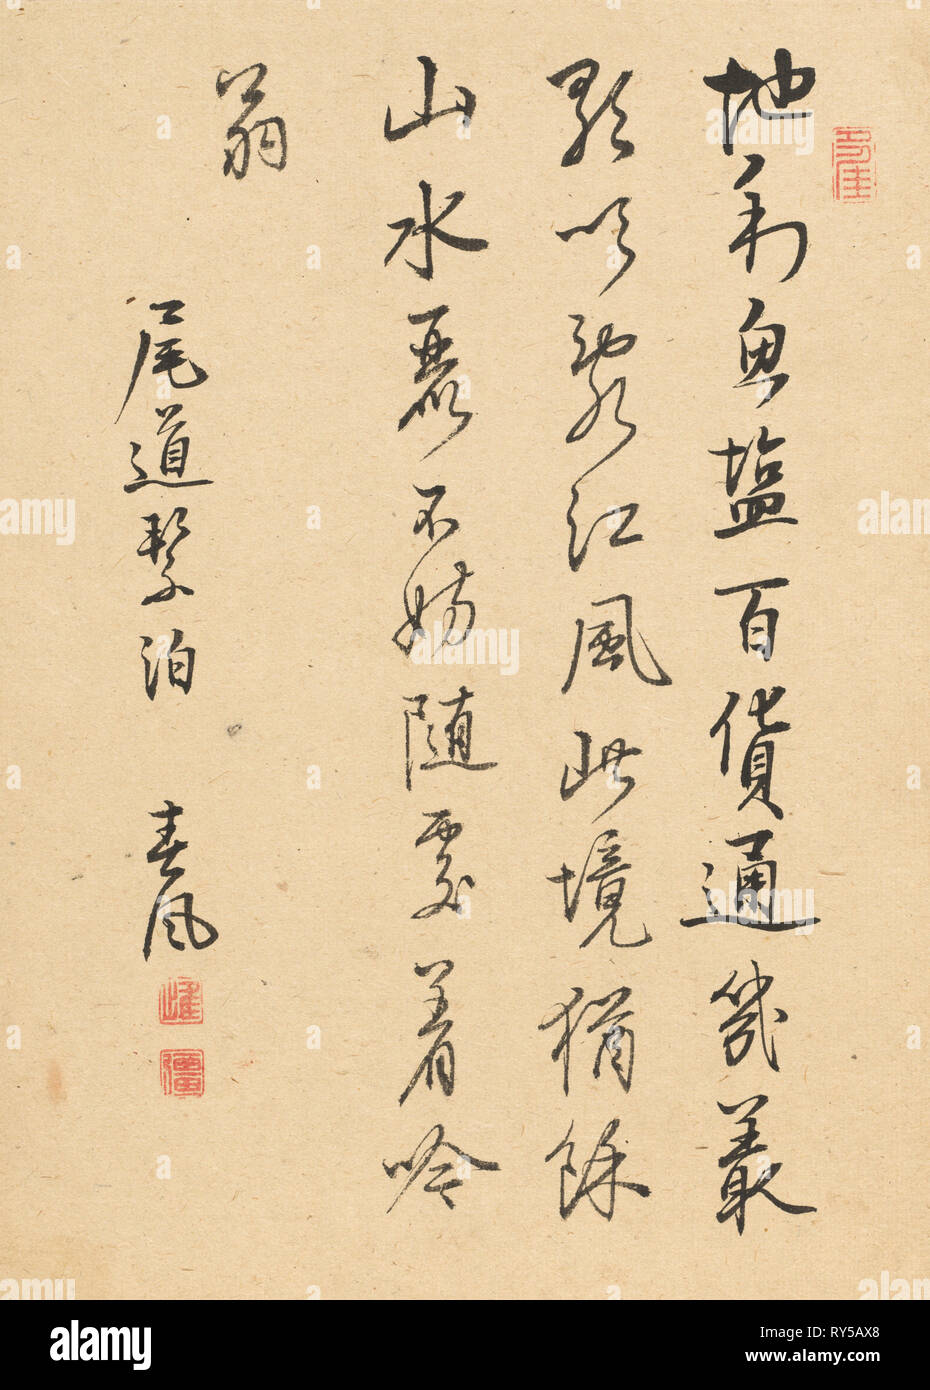 地利魚塩百貨通幾叢
歌吹裂江風此境猶餘
山水麗不妨随處着吟
翁
尾道繋泊 春風
alamy
Image ID: RY5AX8
www.alamy.com